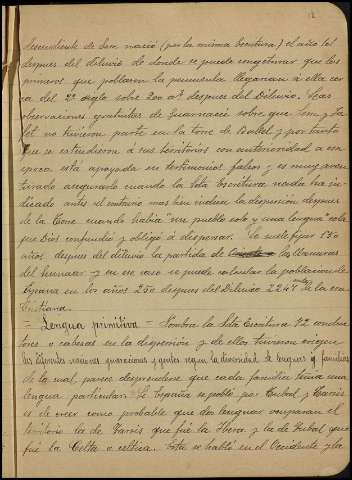 12
descendiente de Sem nació (por la misma Escritura) el año 101
despues del diluvio de donde se puede congeturar que los
primeros que poblaron la peninsula llegarian á ella cer
ca del 2º siglo sobre 200 aº despues del Diluvio. Las
observaciones gratuitas de Guarnacci sobre que Sem y Ja
fet no tuvieron parte en la torre de Babel y por tanto
que se estendieron á sus territorios con anterioridad a esa
epoca está apoyada en testimonios falsos y es muy aven
turado asegurarlo cuando la Sta Escritura nada ha in
dicado antes el contrario mas bien indica la dispersion despues
de la Torre cuando habia "un pueblo solo y una lengua" sola
que Dios confundió y obligó á dispersar. Se suele fijar 150
años despues del diluvio la partida de las llanuras
del Sennaar y en ese caso se puede calcular la poblacion de
España en los años 250 despues del Diluvio 224 antes de la era
Cristiana.
= Lengua primitiva = Nombra la Sta Escritura 72 conduc
tores o cabezas en la dispersion y de ellos tuvieron origen
las diferentes naciones generaciones y gentes segun la diversidad de lenguas y familias
de lo cual parece desprenderse que cada familia tenia una
lengua particular. Si España se pobló por Tubal y Tarsis
es de creer como probable que dos lenguas ocuparan el
territorio la de Tarsis que fué la Ibera y la de Tubal que
fué la Celta o céltica. Esta se habló en el Occidente y la